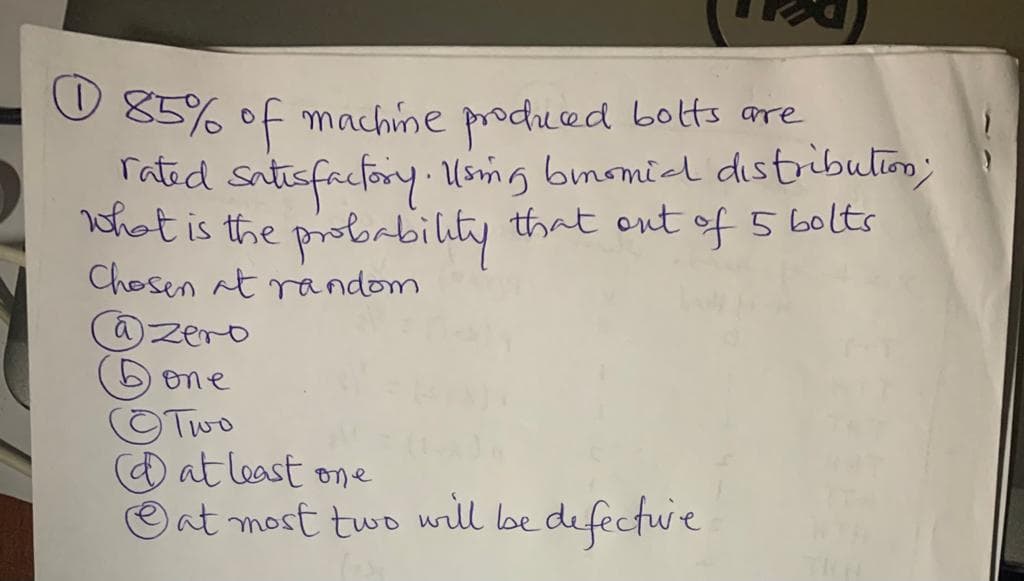 DELL
① 85% of machine produced bolts are
rated satisfactory. Using binomial distribution;
what is the probability that out of 5 bolts
Chosen at random
ⓐ zero
ⓑ one
ⓒ Two
ⓓ at least one
ⓔ at most two will be defective